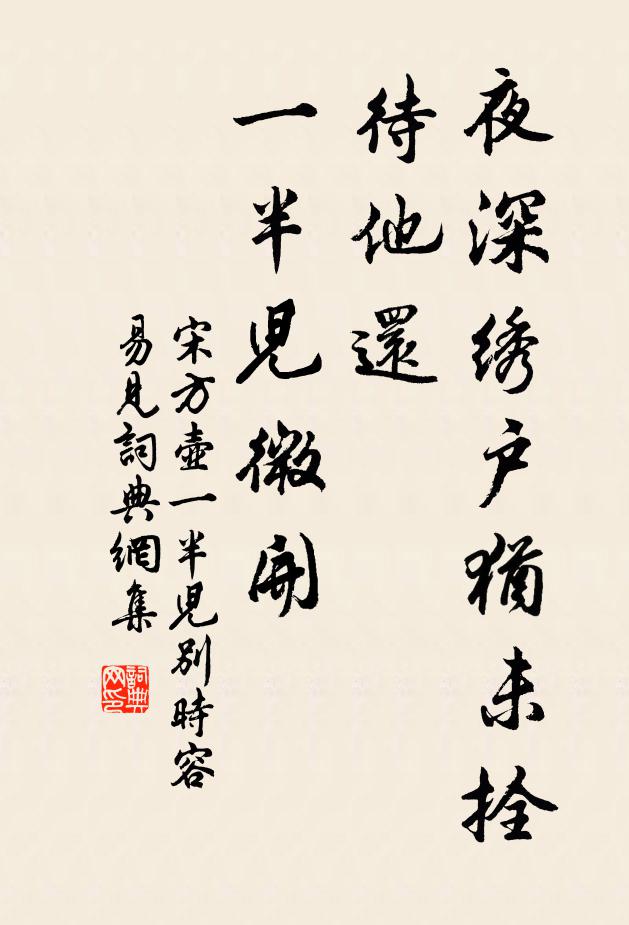 夜深绣户猶未拴
待他還
一半児微開
宋方壺一半児别時容
易見詞典網集
詞典
网印